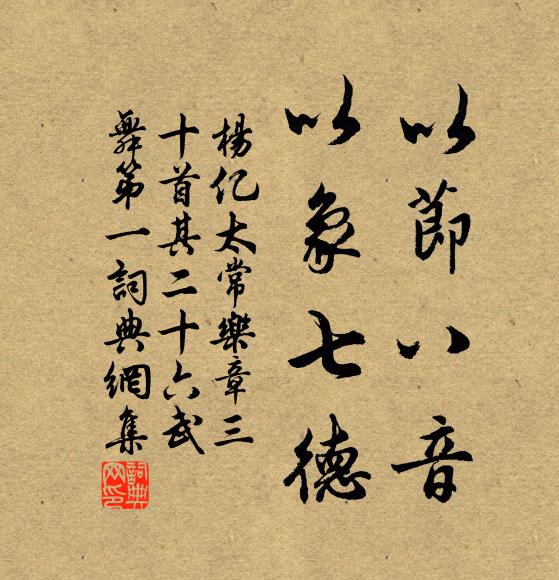 以節八音
以象七德
楊亿太常樂章三
十首其二十六武
舞第一詞典網集
詞典網印